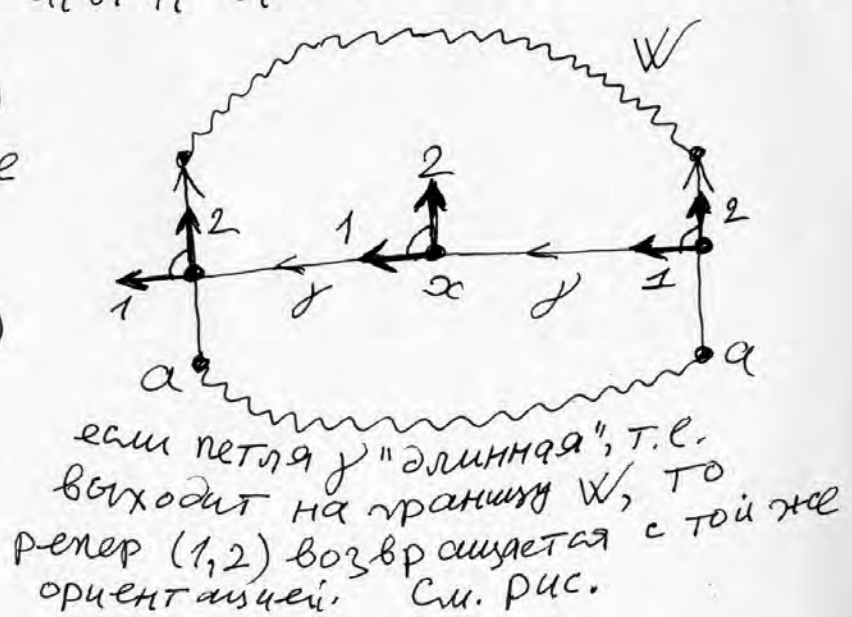 W
2
2
1
2
1
γ
x
γ
1
a
a
если петля γ "длинная", т.е.
выходит на границу W, то
репер (1,2) возвращается с той же
ориентацией. См. рис.